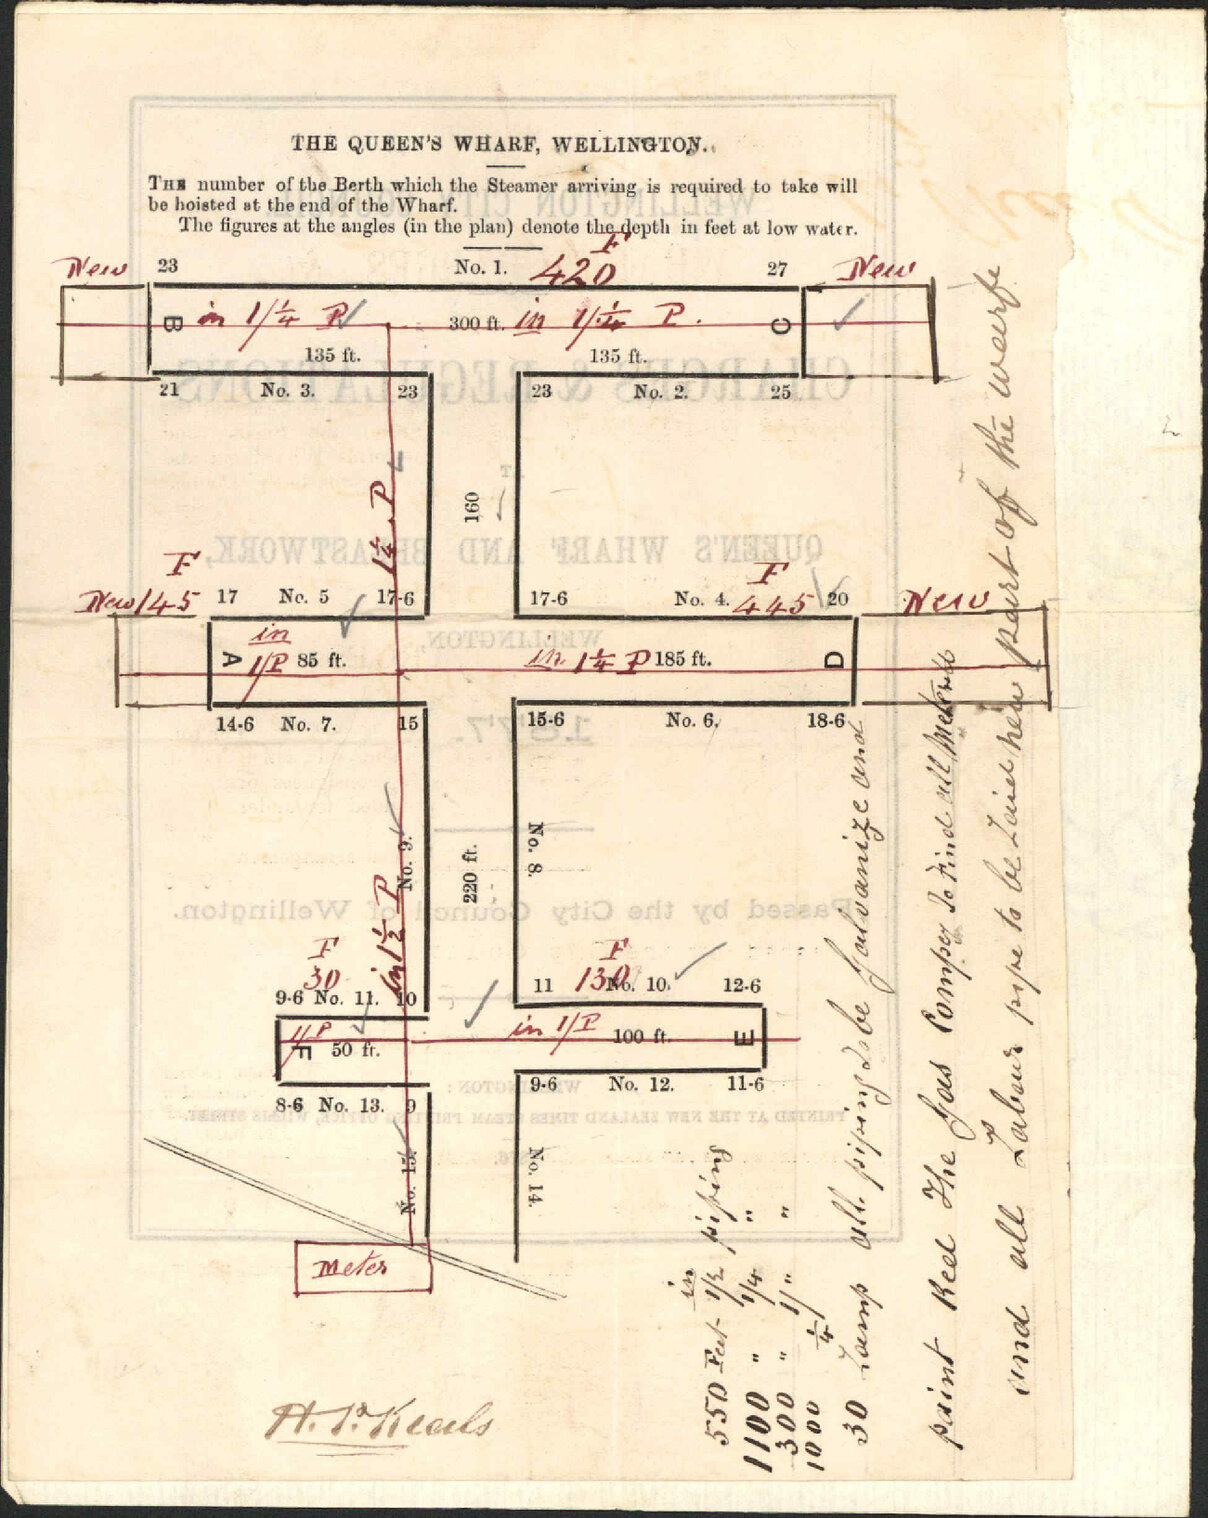 THE QUEEN'S WHARF, WELLINGTON.
THE number of the Berth which the Steamer arriving is required to take will
be hoisted at the end of the Wharf.
The figures at the angles (in the plan) denote the depth in feet at low water.
F
New 23 No. 1. 420 27 New
B in 1/¼ P 300 ft. in 1/¼ P. C
135 ft. 135 ft.
21 No. 3. 23 23 No. 2. 25
160
1¼ P
F F
New 145 17 No. 5 17-6 17-6 No. 4. 445 20 New
A in 1/P 85 ft. in 1¼ P 185 ft. D
14-6 No. 7. 15 15-6 No. 6. 18-6
No. 9. 220 ft. No. 8.
in 1½ P
F F
30 130
9-6 No. 11. 10 11 No. 10. 12-6
1/P F 50 ft. in 1/P 100 ft. E
8-6 No. 13. 9 9-6 No. 12. 11-6
No. 15. No. 14.
Meter
in
550 Feet 1½ piping
1100 " 1/4 "
300 " 1/" "
1000 ¼
30 Lamp all piping to be Galvanize and
paint Red The Gas Compy to Find all Meterell
and all Labour pipe to be Laid new part of the wearfe
WELLINGTON CITY COUNCIL
CHARGES & REGULATIONS
AT
QUEEN'S WHARF AND BREASTWORK,
WELLINGTON,
1877.
Passed by the City Council of Wellington.
WELLINGTON:
PRINTED AT THE NEW ZEALAND TIMES STEAM PRINTING OFFICE, WILLIS STREET.